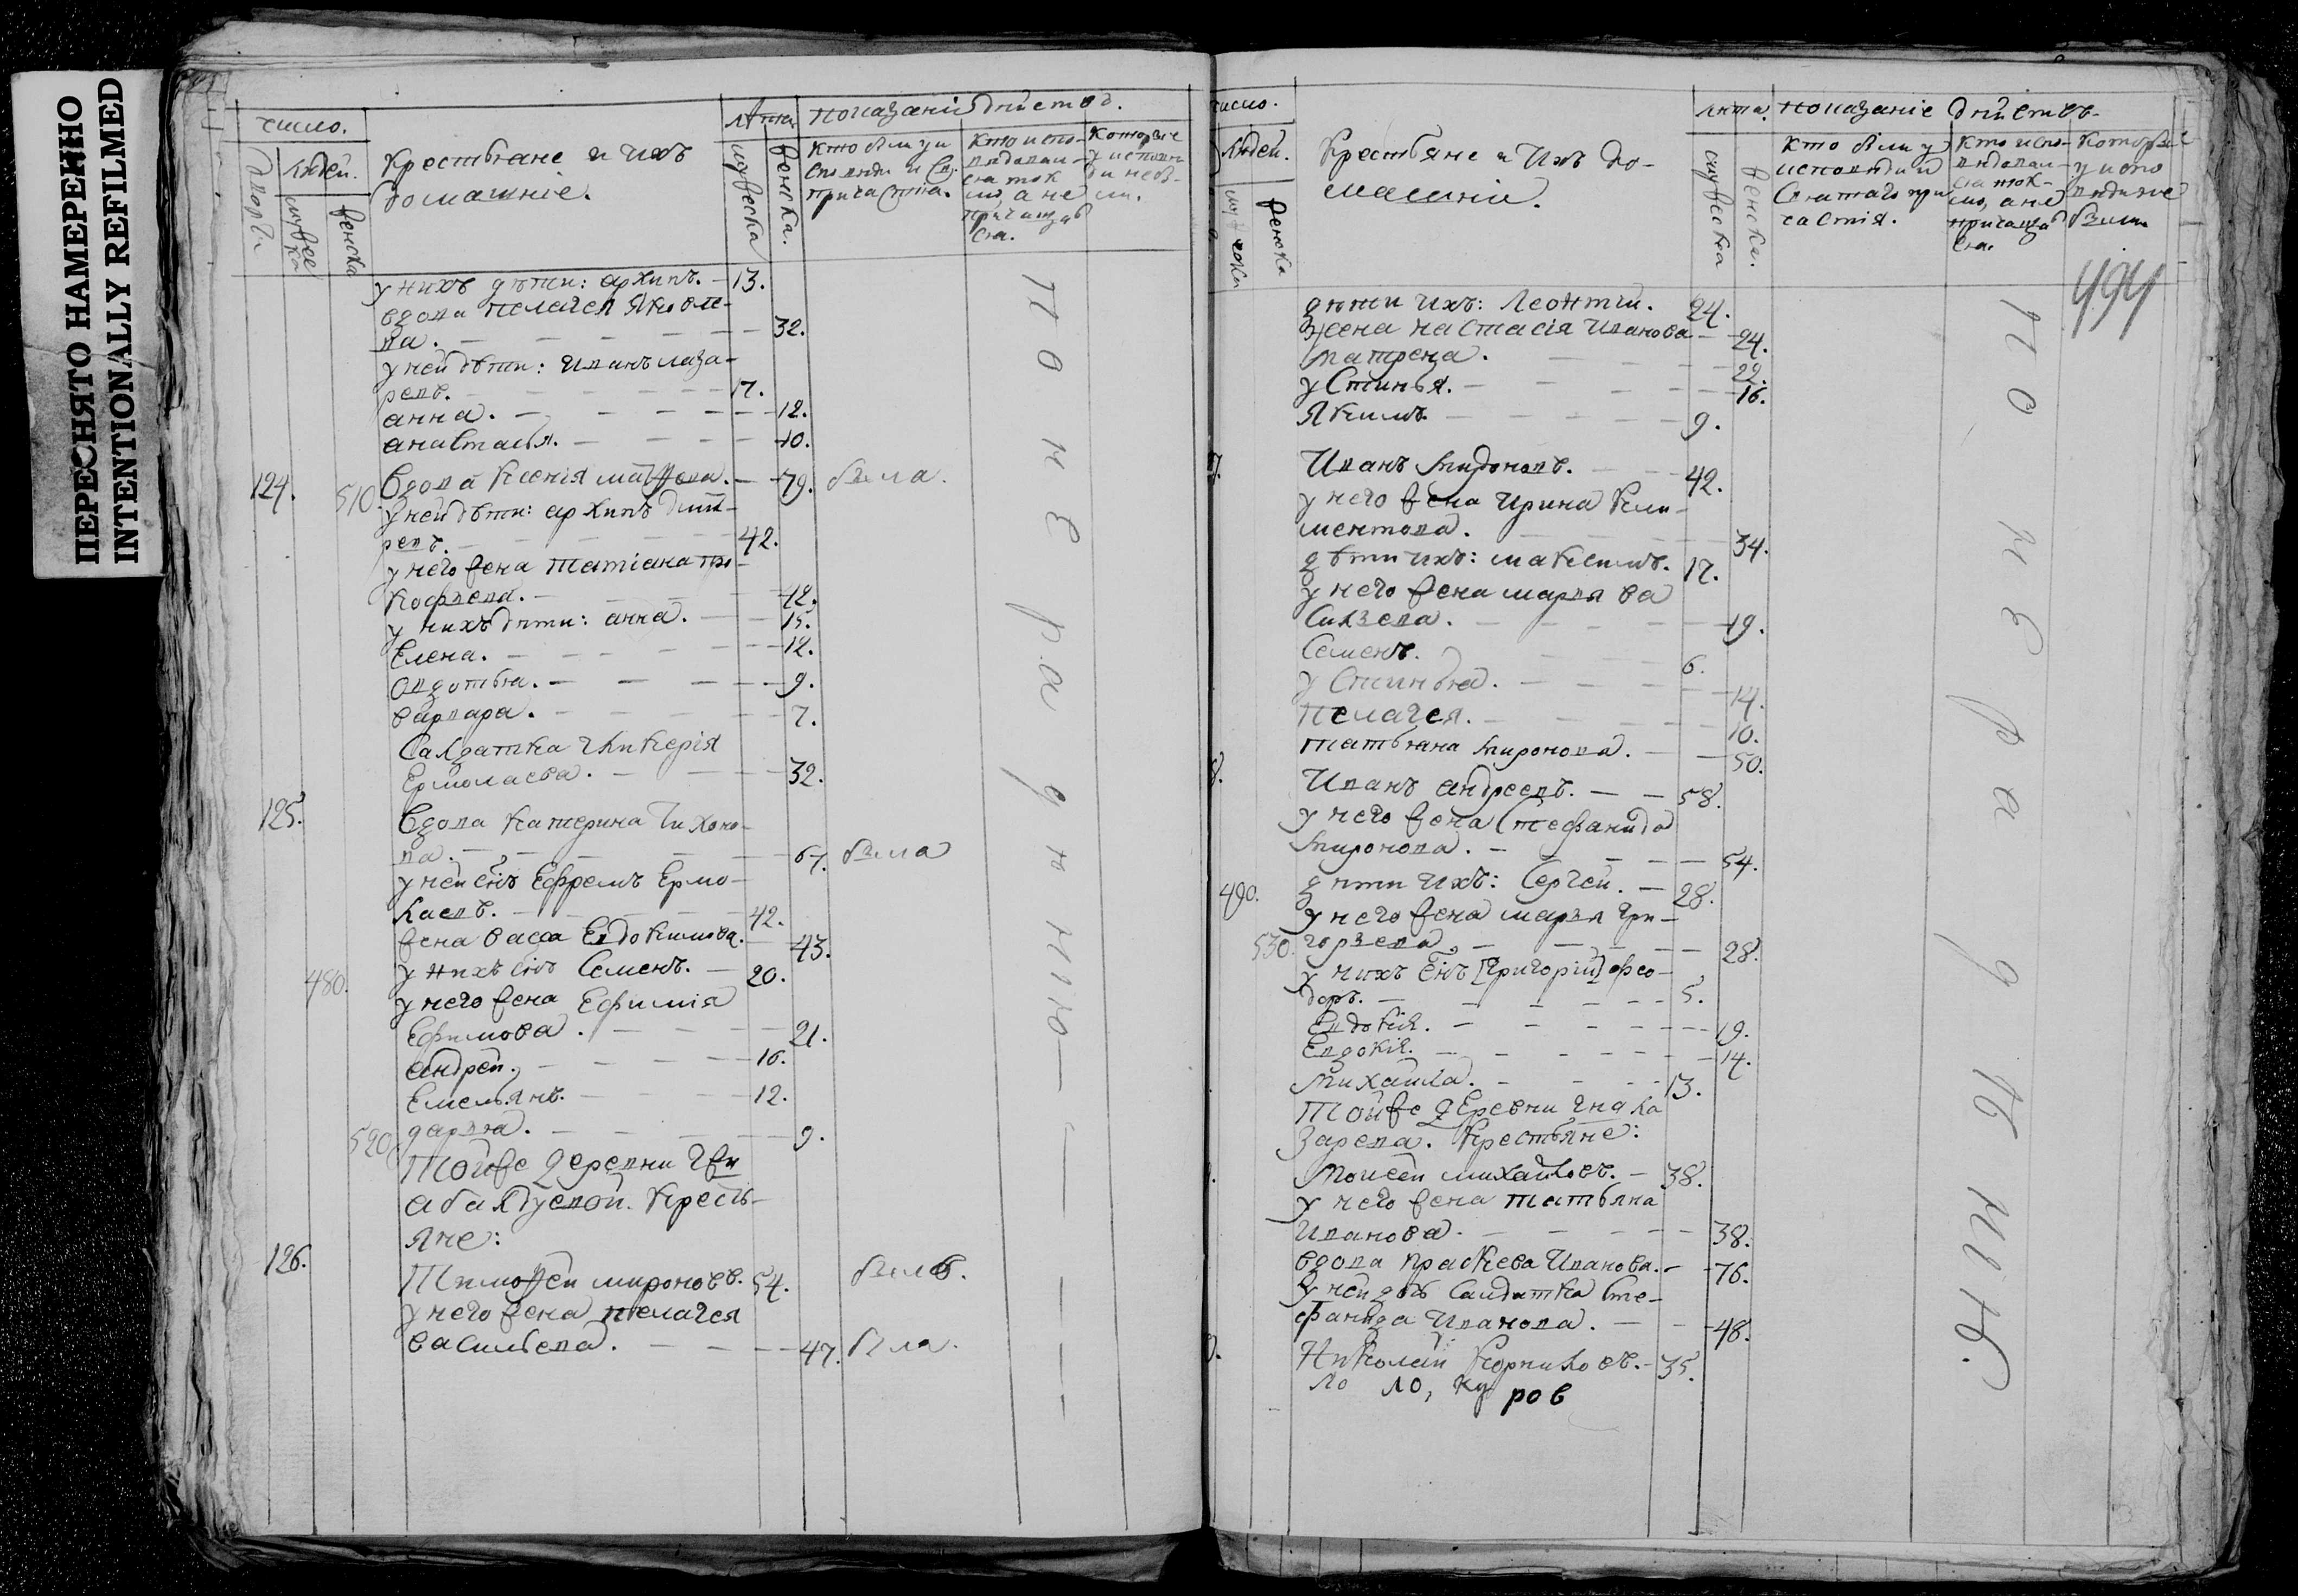 ПЕРЕСНЯТО НАМЕРЕННО
INTENTIONALLY REFILMED
число.
людей.
Крестьяне и ихъ
домашніе.
лѣта
показаніе дѣйствъ.
дворы
мужеска
женска
мужеска
женска.
кто были у и
сповѣди и Св.
причастия.
кто испо-
вѣдали-
ся ток
мо, а не
причащал
ся.
которые
у исповѣ
ди не бы-
ли.
у нихъ дѣти: архипъ. 13.
вдова пелагея Яковле-
ва. 32.
у ней дѣти: Иванъ лаза-
ревъ. 17.
анна. 12.
анастасья. 10.
124. 510. Вдова Ксенія матѳеева. 79. была.
у ней дѣти: архипъ дмит-
ревъ. 42.
у него жена татіана про-
кофьева. 42.
у нихъ дѣти: анна. 15.
Елена. 12.
овдотья. 9.
варвара. 7.
Салдатка Гликерія
Ермолаева. 32.
125. Вдова Катерина Тихоно-
ва. 67. была
у ней снъ Ефремъ Ермо-
лаевъ. 42.
жена васса Евдокимова. 43.
480. у нихъ снъ Семенъ. 20.
у него жена Ефимія
Ефимова. 21.
андрей. 16.
Емельянъ. 12.
520. дарья. 9.
Тойже деревни Гжи
абалдуевой Кресть-
яне:
126. Тимоѳей мироновъ. 54. былъ.
у него жена пелагея
васильева. 47. была.
по нерадѣнию
число.
людей.
мужеска
женска
Крестьяне и Ихъ до-
машніи.
лѣта.
показаніе дѣйствъ
мужеска
женска.
кто были у
исповѣди и
Святаго при
частія.
кто испо-
вѣдали-
ся ток-
мо, а не
причащал
ся.
которые
у испо
вѣди не
были
494
дѣти ихъ: Леонтий. 24.
жена настасія Иванова 24.
матрена. 22.
устинья. 16.
Якимъ. 9.
Иванъ мироновъ. 42.
у него жена Ирина Кли-
ментова. 34.
дѣти ихъ: максимъ. 17.
у него жена марья ва
сильева. 19.
Семенъ. 6.
устинья. 14.
пелагея. 10.
татьяна миронова. 50.
Иванъ андреевъ. 58.
у него жена Стефанида
миронова. 54.
490. дѣти ихъ: Сергей. 28.
у него жена марья гри-
530. горьева. 28.
у нихъ снъ [григорій] фео-
доръ. 5.
Евдокия. 19.
Евдокия. 14.
михаила. 13.
тойже деревни Гна ла
зарева. Крестьяне:
моисей михайловъ. 38.
у него жена татьяна
Иванова. 38.
вдова праскева Иванова. 76.
у ней дочь Салдатка Сте-
фанида Иванова. 48.
Николай Корниловъ. 35.
по нерадѣнию.